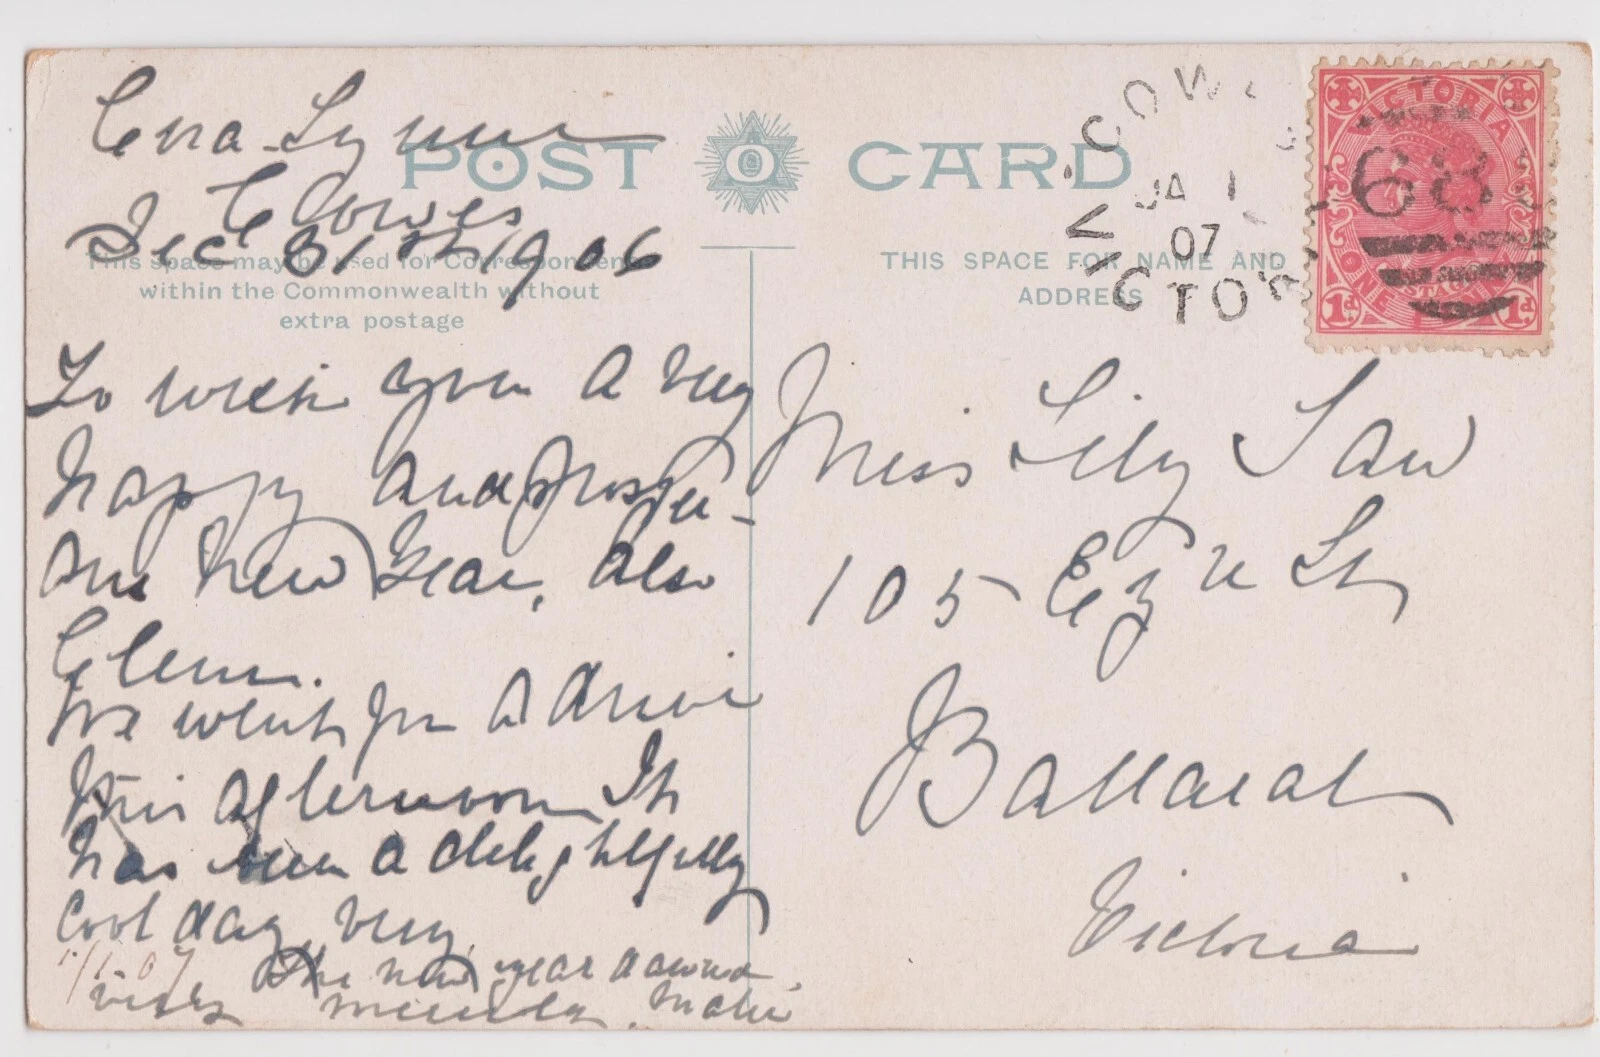 Lynne
Cowes
Dec 31st 1906
POST CARD
This space may be used for Correspondence
within the Commonwealth without
extra postage
To wish you a very
happy and prosper-
ous New Year, also
Glenn.
We went for a drive
this afternoon It
has been a delightfully
cool day, very
1/1-07
The new year
Matie
THIS SPACE FOR NAME AND
ADDRESS
COW
JA 1
07
VICTORIA
VICTORIA
68
ONE
1d 1d
Miss Lily Law
105 Eyre St
Ballarat
Victoria